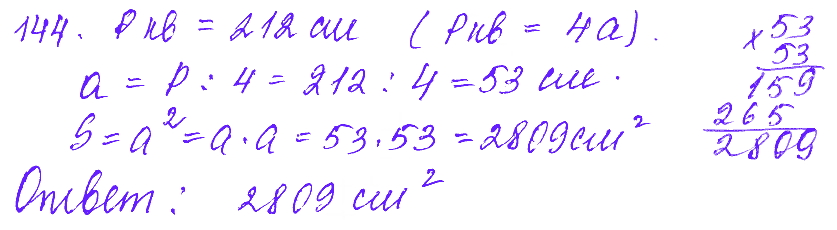 144. Pкв = 212 см (Pкв = 4a).
a = P : 4 = 212 : 4 = 53 см.
S = a² = a · a = 53 · 53 = 2809 см²
Ответ: 2809 см²
× 53
53
159
265
2809